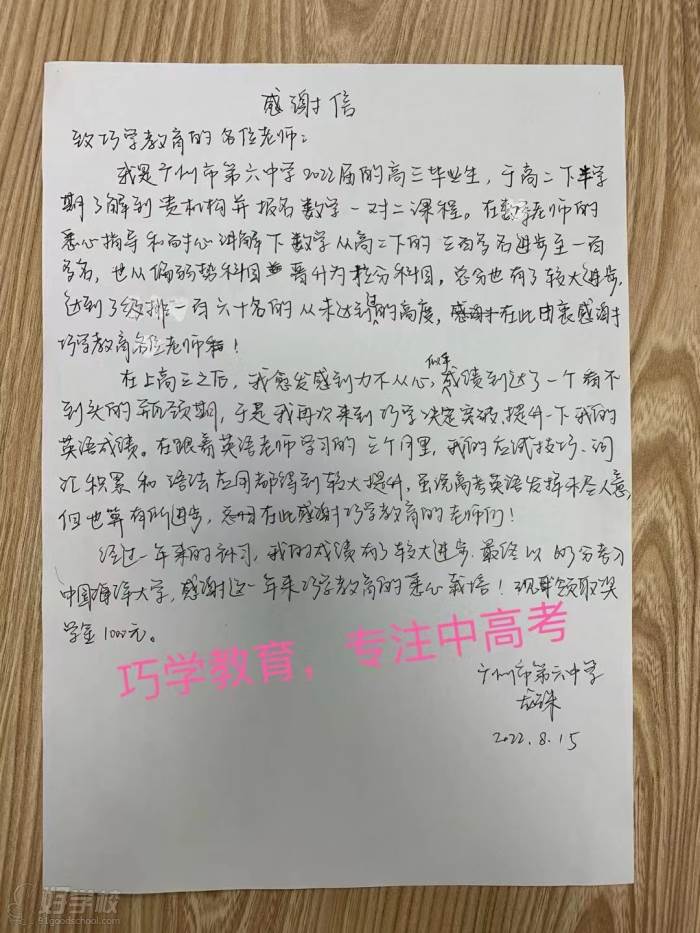 感谢信
致巧学教育的各位老师:
我是广州市第六中学2022届的高三毕业生,于高二下半学
期了解到贵机构并报名数学一对二课程。在数学老师的
悉心指导和耐心讲解下数学从高二下的三百多名进步至一百
多名,也从偏弱势科目晋升为拉分科目。总分也有了较大进步,
达到了级排一百六十名的从未达到的高度,在此由衷感谢
巧学教育各位老师!
在上高三之后,我愈发感到力不从心,似乎成绩到达了一个看不
到头的瓶颈期,于是我再次来到巧学决定突破、提升一下我的
英语成绩。在跟着英语老师学习的三个月里,我的应试技巧、词
汇积累和语法应用都得到较大提升,虽说高考英语发挥未尽人意,
但也算有所进步,在此感谢巧学教育的老师们!
经过一年来的补习,我的成绩有了较大进步,最终以 分考入
中国海洋大学,感谢这一年来巧学教育的悉心栽培!现我领取奖
学金1000元。
巧学教育,专注中高考
广州市第六中学
2022.8.15
好学校
91goodschool.com